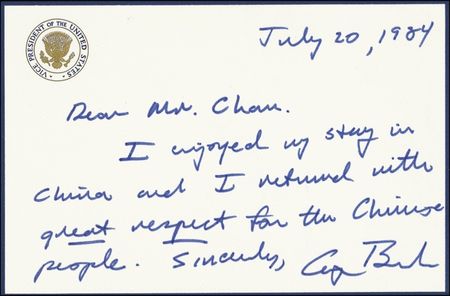 VICE PRESIDENT OF THE UNITED STATES
July 20, 1984
Dear Mr. Chan.
I enjoyed my stay in
China and I returned with
great respect for the Chinese
people. Sincerely, George Bush